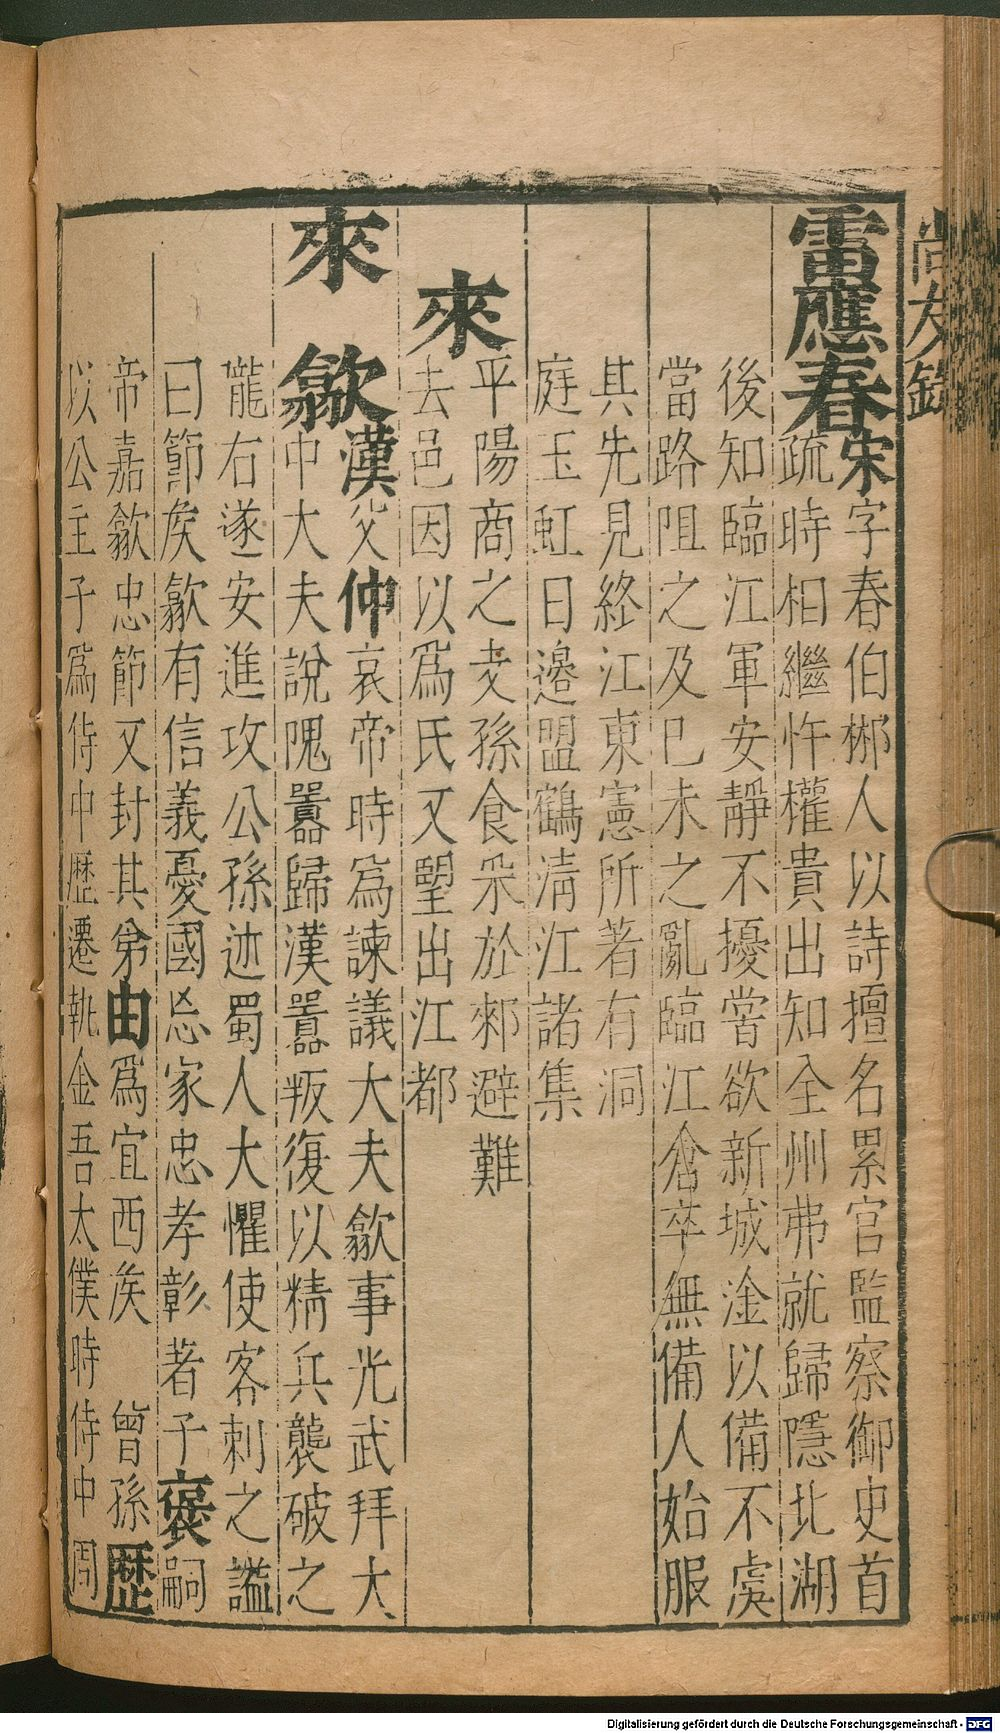 尚友錄
雷應春宋字春伯郴人以詩擅名累官監察御史首
疏時相繼忤權貴出知全州弗就歸隱北湖
後知臨江軍安靜不擾嘗欲新城淦以備不虞
當路阻之及巳未之亂臨江倉卒無備人始服
其先見終江東憲所著有洞
庭玉虹日邉盟鶴淸江諸集
來
平陽商之支孫食采於郲避難
去邑因以爲氏又望出江都
來歙漢父仲哀帝時爲諫議大夫歙事光武拜大
中大夫說隗囂歸漢囂叛復以精兵襲破之
隴右遂安進攻公孫述蜀人大懼使客刺之謚
曰節矦歙有信義憂國忘家忠孝彰著子褒嗣
帝嘉歙忠節又封其弟由爲宜西矦 曾孫歷
以公主子爲侍中歷遷執金吾太僕時侍中周
Digitalisierung gefördert durch die Deutsche Forschungsgemeinschaft - DFG